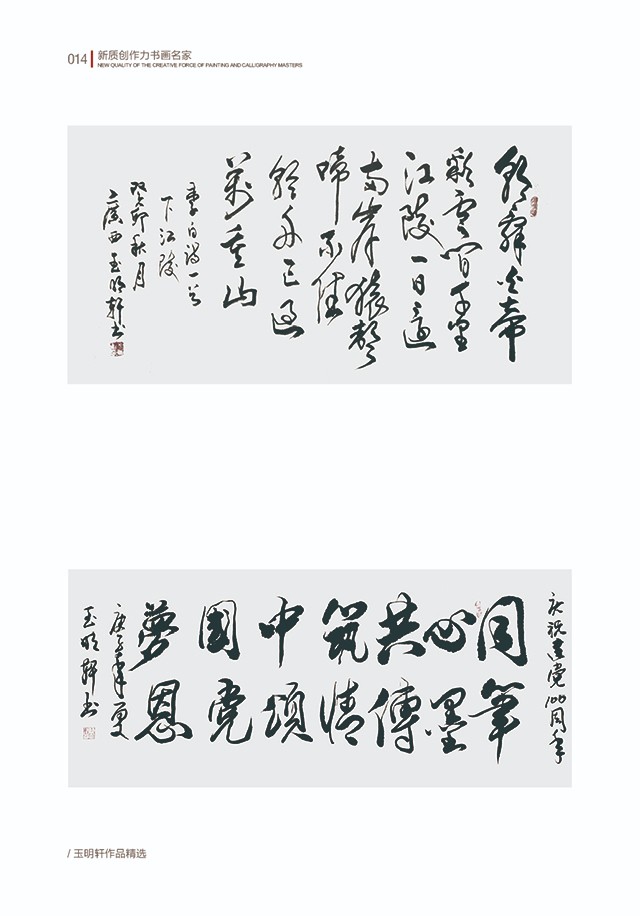 014
新质创作力书画名家
NEW QUALITY OF THE CREATIVE FORCE OF PAINTING AND CALLIGRAPHY MASTERS
朝辭白帝
彩雲間千里
江陵一日還
兩岸猿聲
啼不住
輕舟已過
萬重山
李白诗一首
下江陵
癸卯秋月
广西玉明轩书
庆祝建党100周年
同心共筑中國夢
筆墨傳情頌党恩
庚子年夏
玉明轩书
/ 玉明轩作品精选